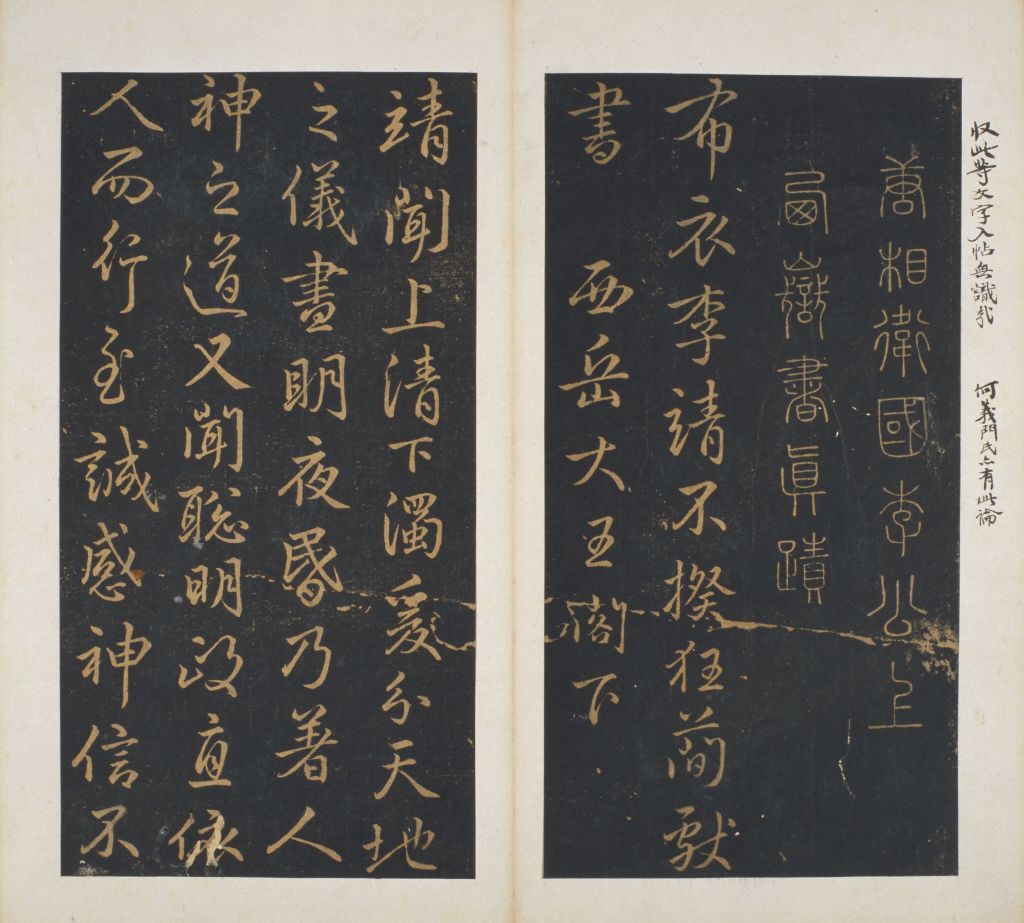 収此等文字入帖無識哉
何義門氏亦有此論
唐相衛國李公上
西嶽書真蹟
布衣李靖不揆狂蕳獻
書 西岳大王閤下
靖聞上清下濁爰分天地
之儀晝明夜昏乃著人
神之道又聞聡明政直依
人而行至誠感神信不